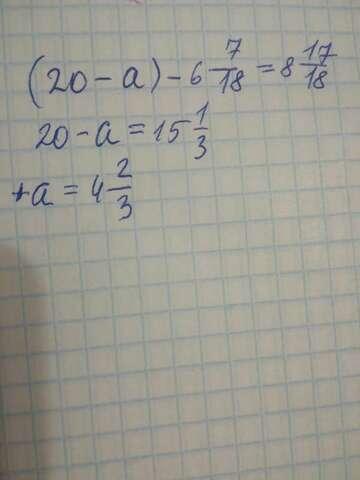 (20 - a) - 6 7/18 = 8 17/18
20 - a = 15 1/3
+a = 4 2/3